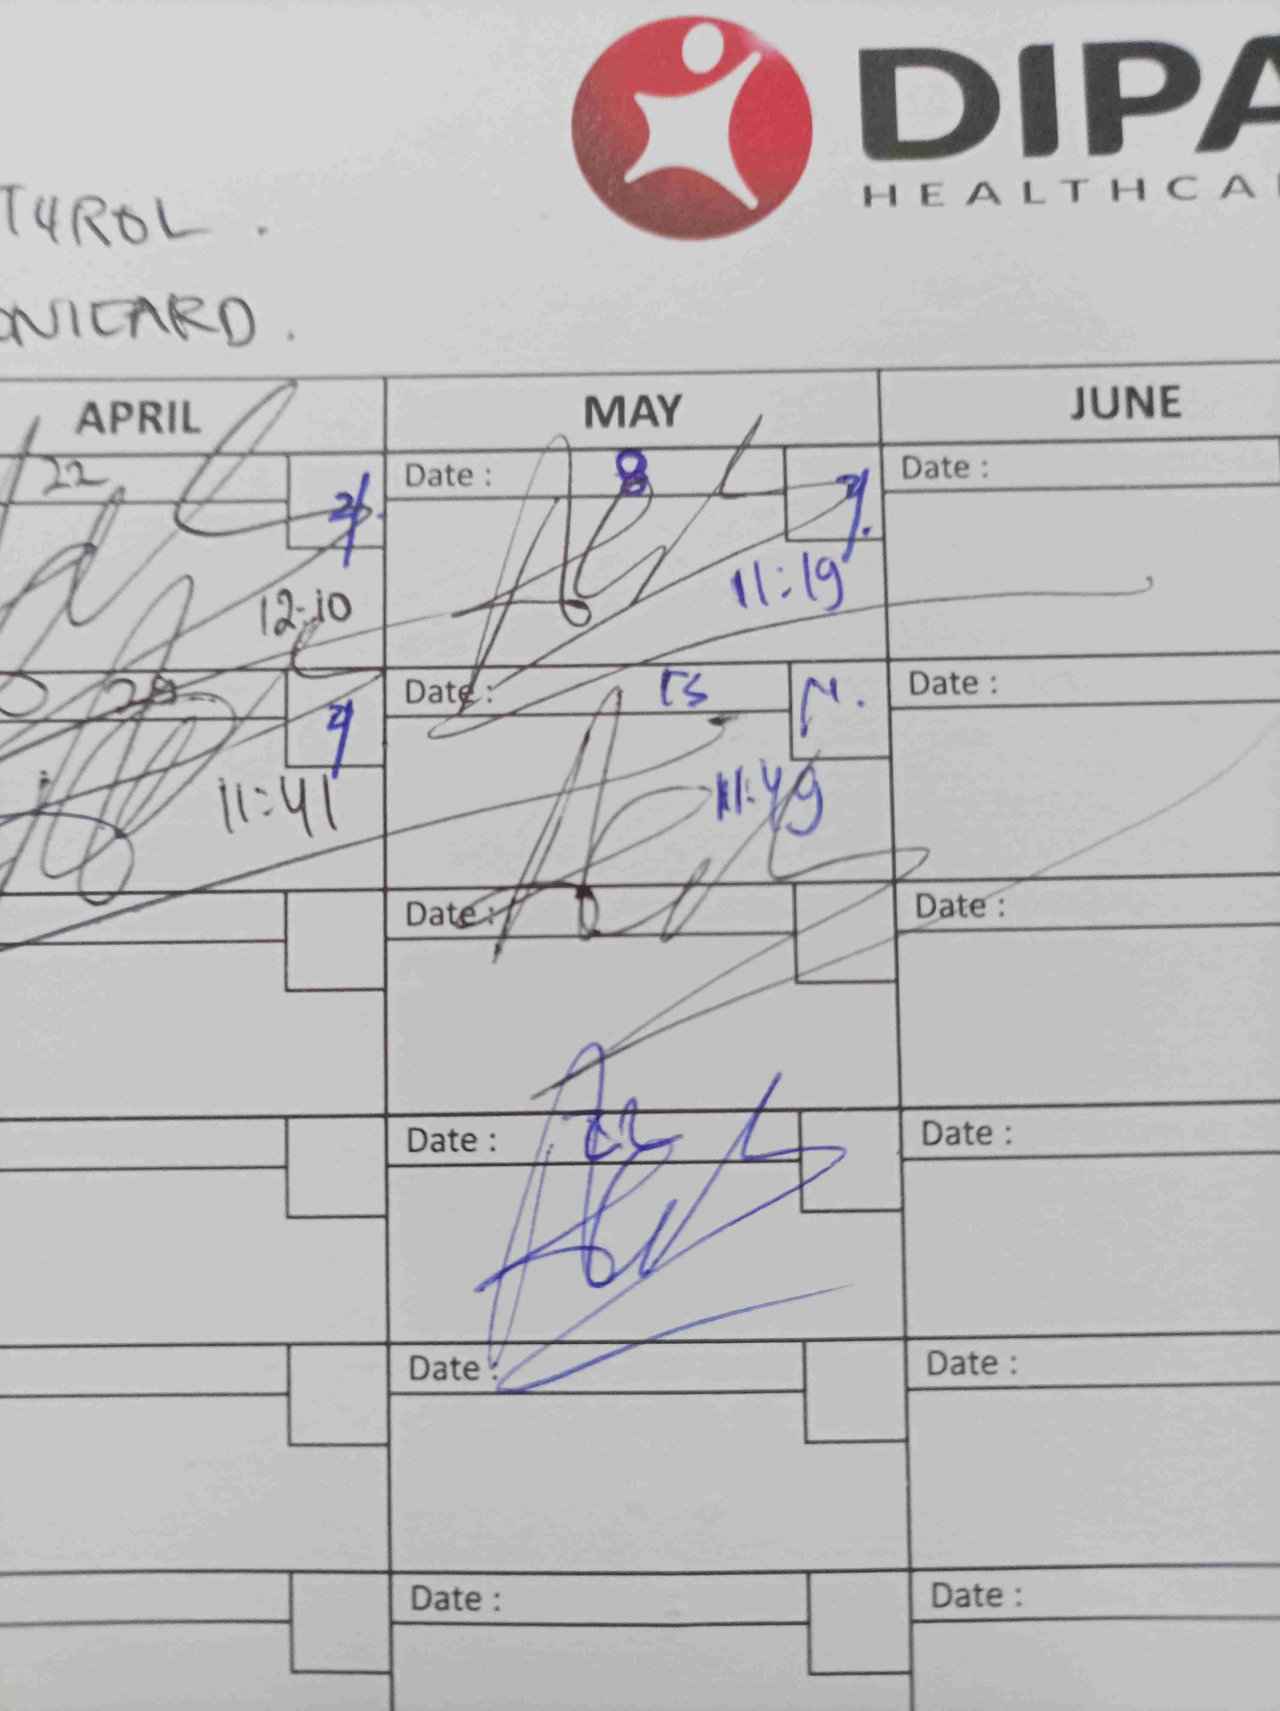 DIPA
HEALTHCA
T4ROL .
ONICARD .
APRIL MAY JUNE
22 Date : 8 Date :
12:10 11:19
29 Date : 15 Date :
11:41 11:49
Date : Date :
Date : 22 Date :
Date : Date :
Date : Date :